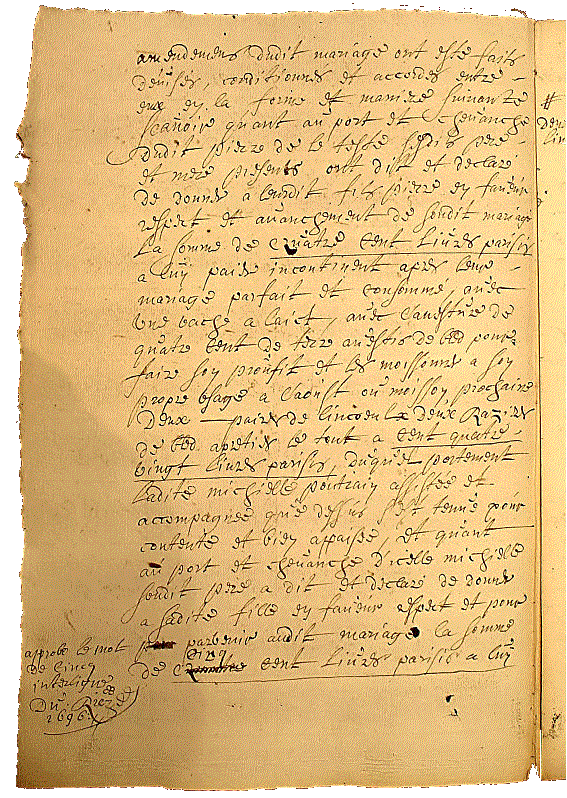 amendemens dudit mariage ont esté faits
devises, conditionnés et accordés entre
eux en la forme et maniere suivante
scavoir quant au port et chevanche
dudit pierre de le teste sesdis pere
et mere presents ont dist et declaré
de donner a leurdit fils pierre en faveur
respect et avanchement de soudit mariage
La somme de Quatre cent Livres parisis
a luy paier incontinent apres leur
mariage parfait et consommé, avec
une vache a laict, avec l'avesture de
quatre cent de terre avestis de bled pour
faire son proufit et les moissonner a son
propre usage a l'aoust ou moisson prochaine
Deux paires de lincoeulx deux Razieres
de bled apretiés le tout a cent quatre
vingt livres parisis, duquel portement
Ladite michielle poutrain assistée et
accompagnée que dessus s'est tenue pour
contente et bien appaisée, et quant
au port et chevanche d'icelle michielle
soudit pere a dit et declaré de donner
a sadite fille en faveur respect et pour
parvenir audit mariage la somme
cinq
de cent livres parisis a luy
approbé le mot
de cincq
interligné
Du
1696
#